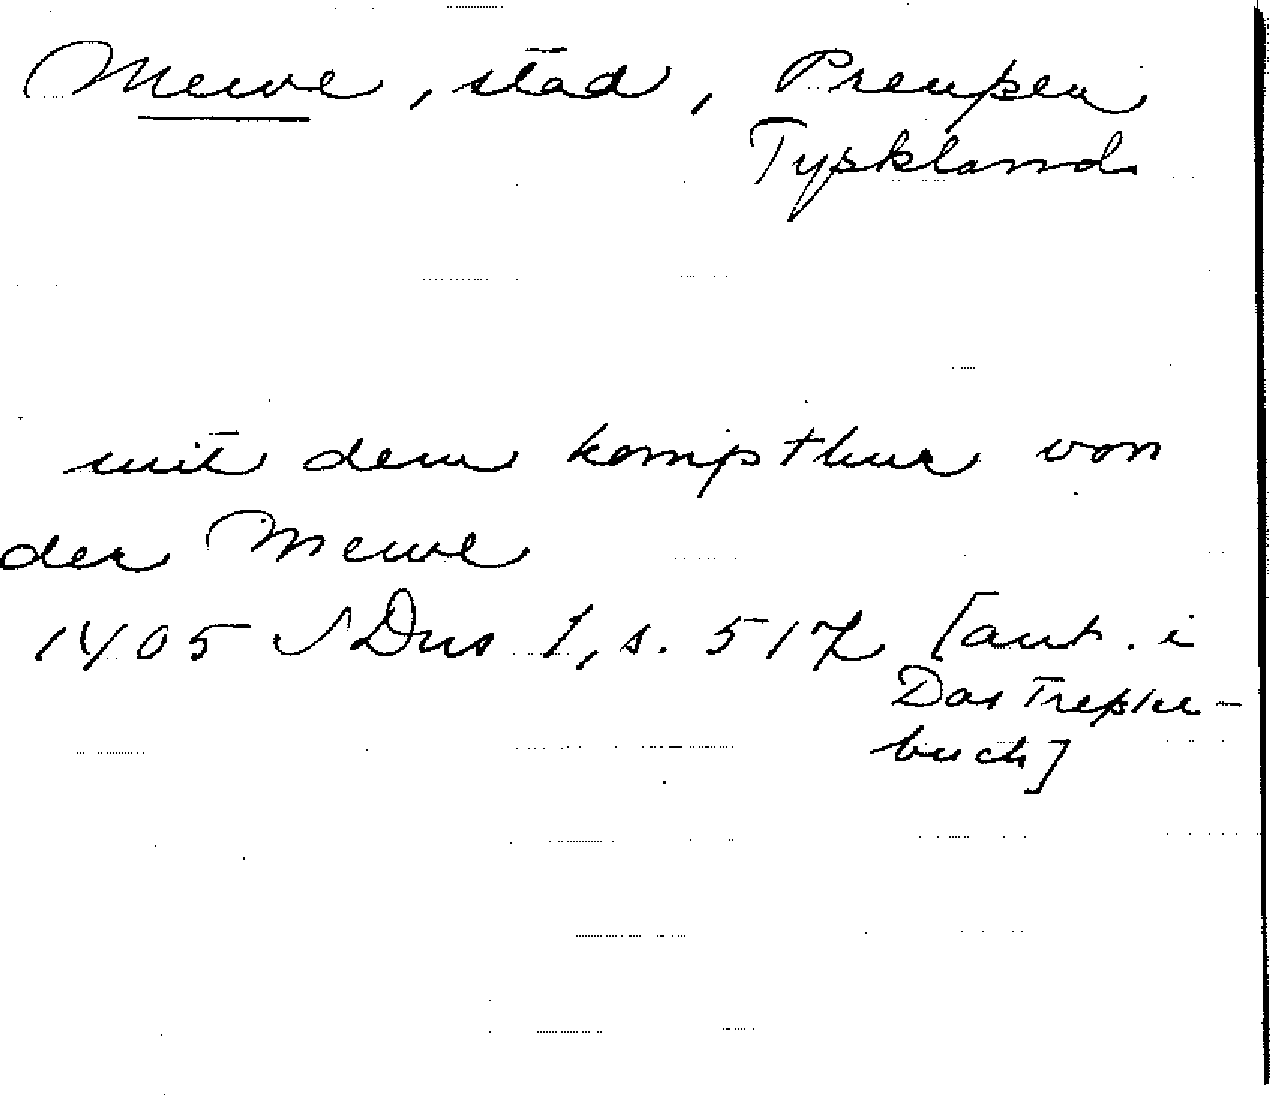 Mewe, stad, Preussen
Tyskland
mit dem kompthur von
der Mewe
1405 SDns 1, s. 517 [ant. i
Das Tressler-
buch]